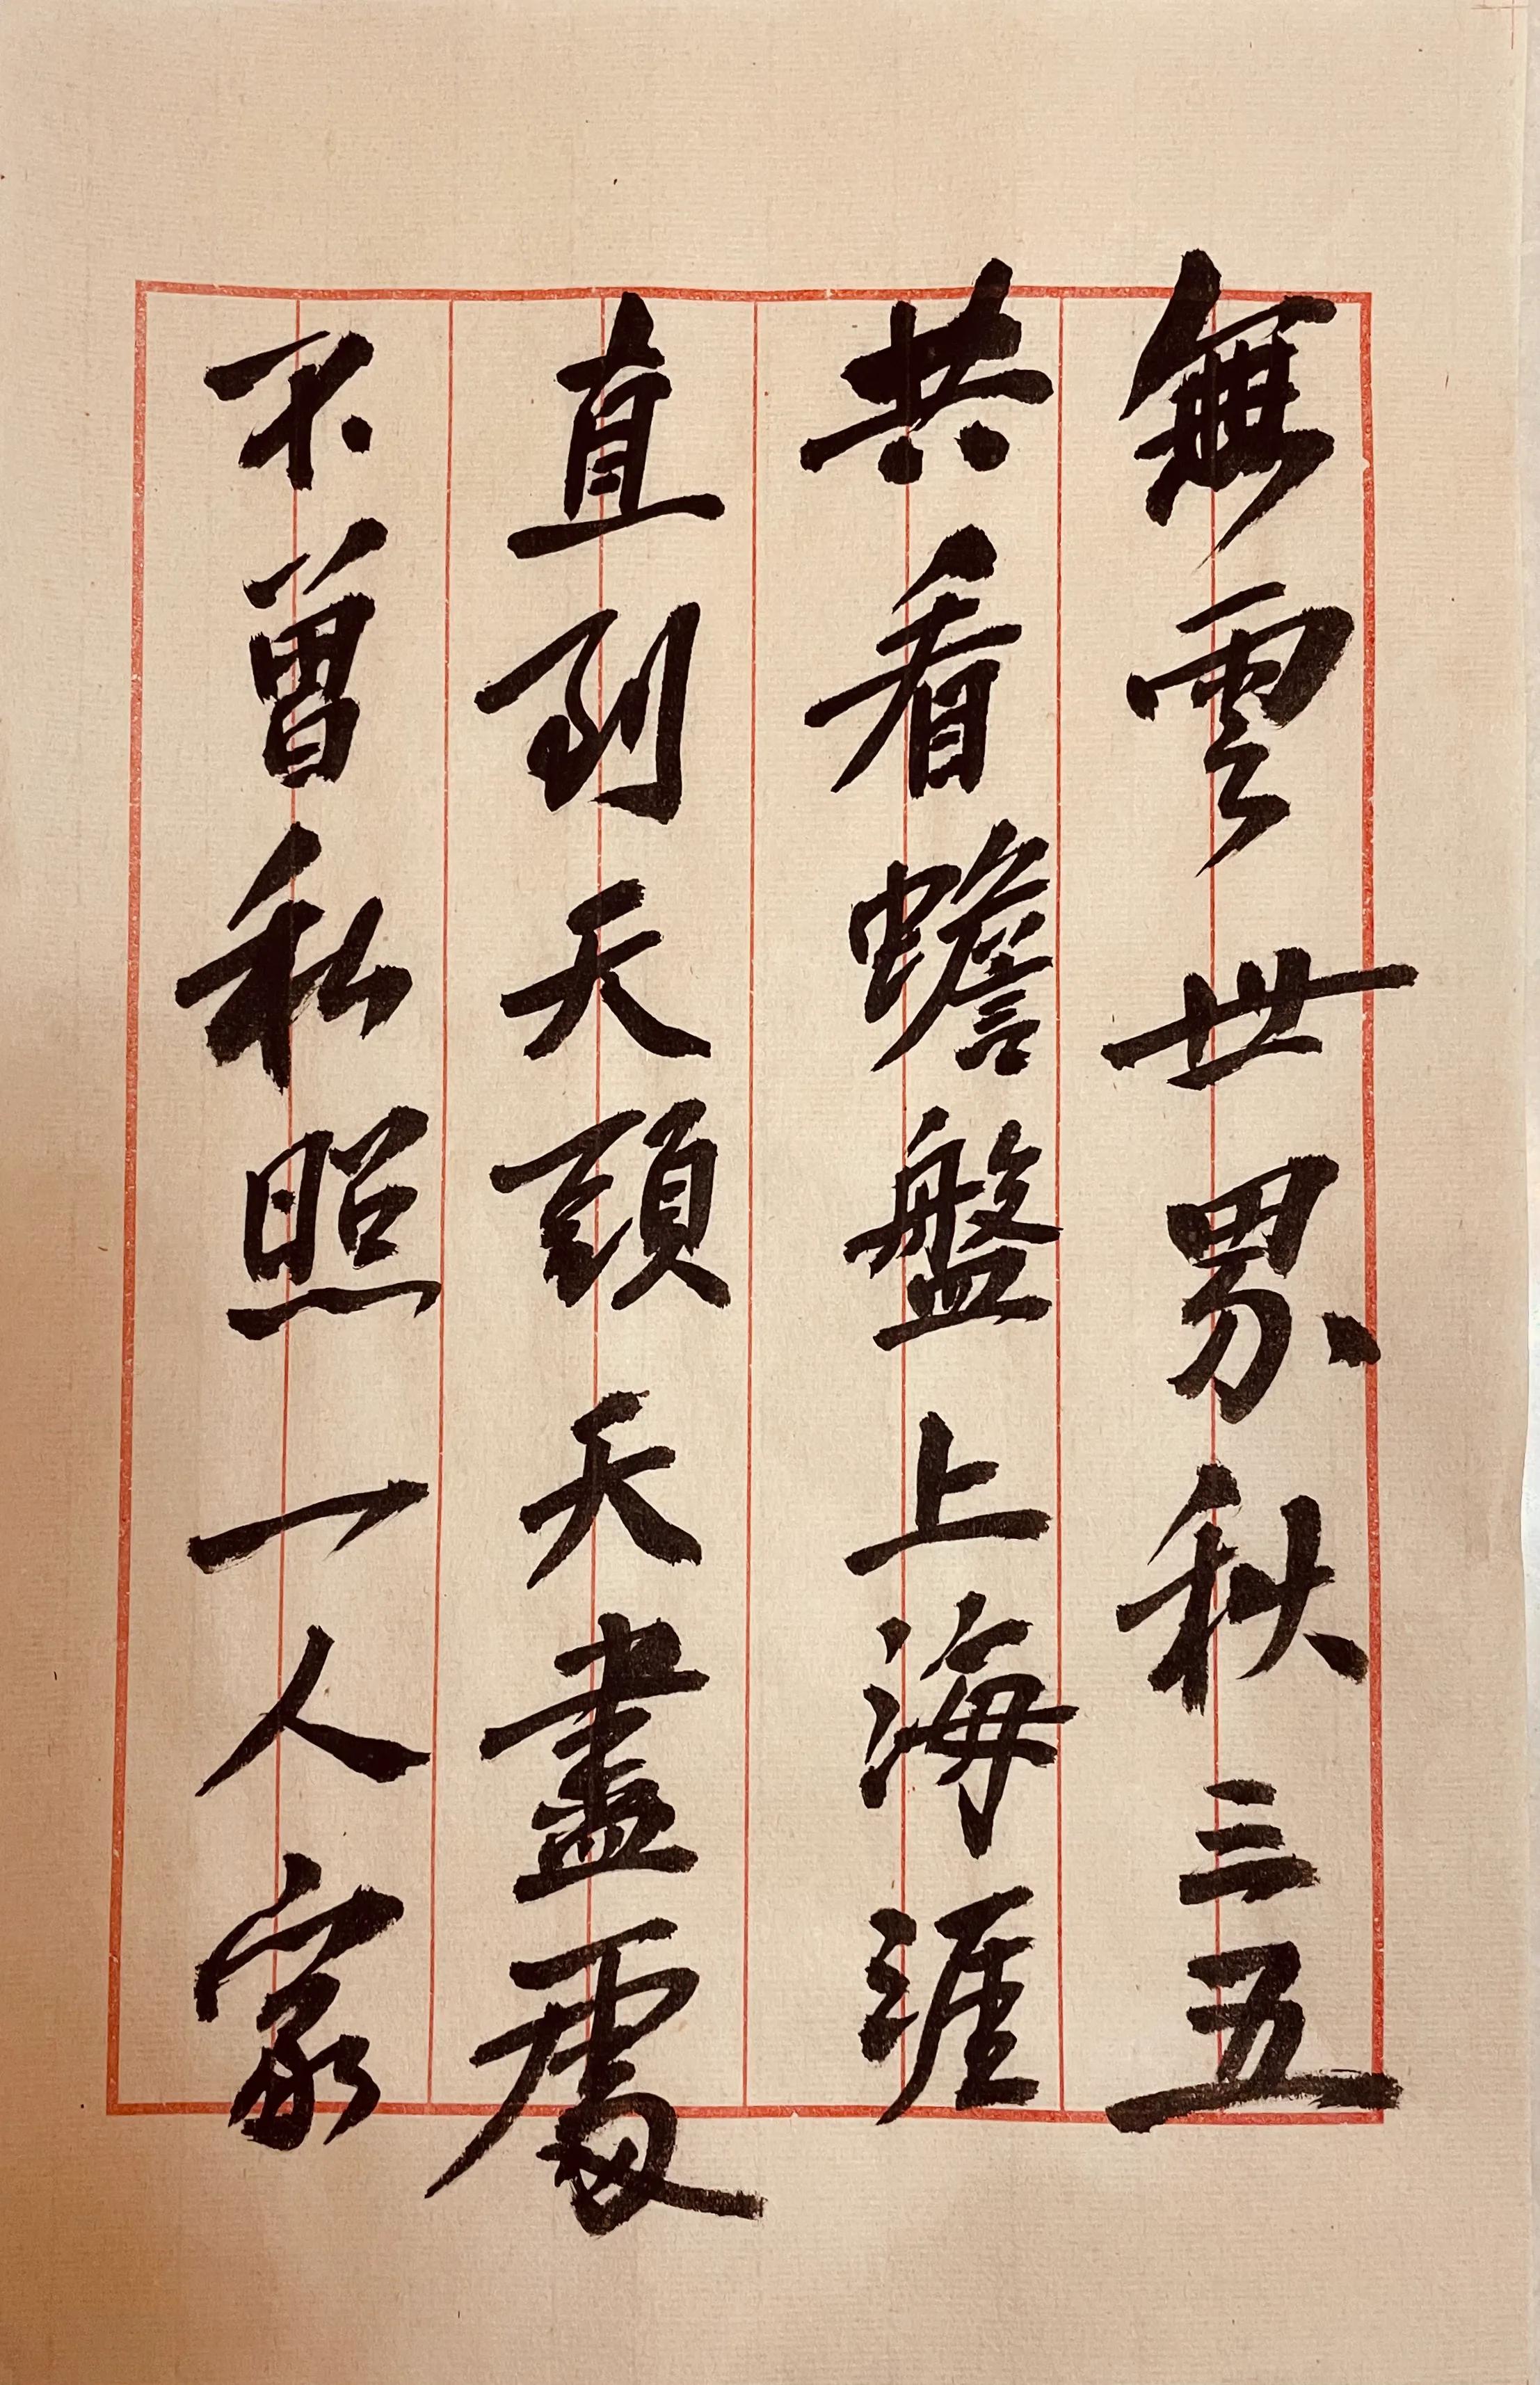 無雲世界秋三五
共看蟾盤上海涯
直到天頭天盡處
不曾私照一人家